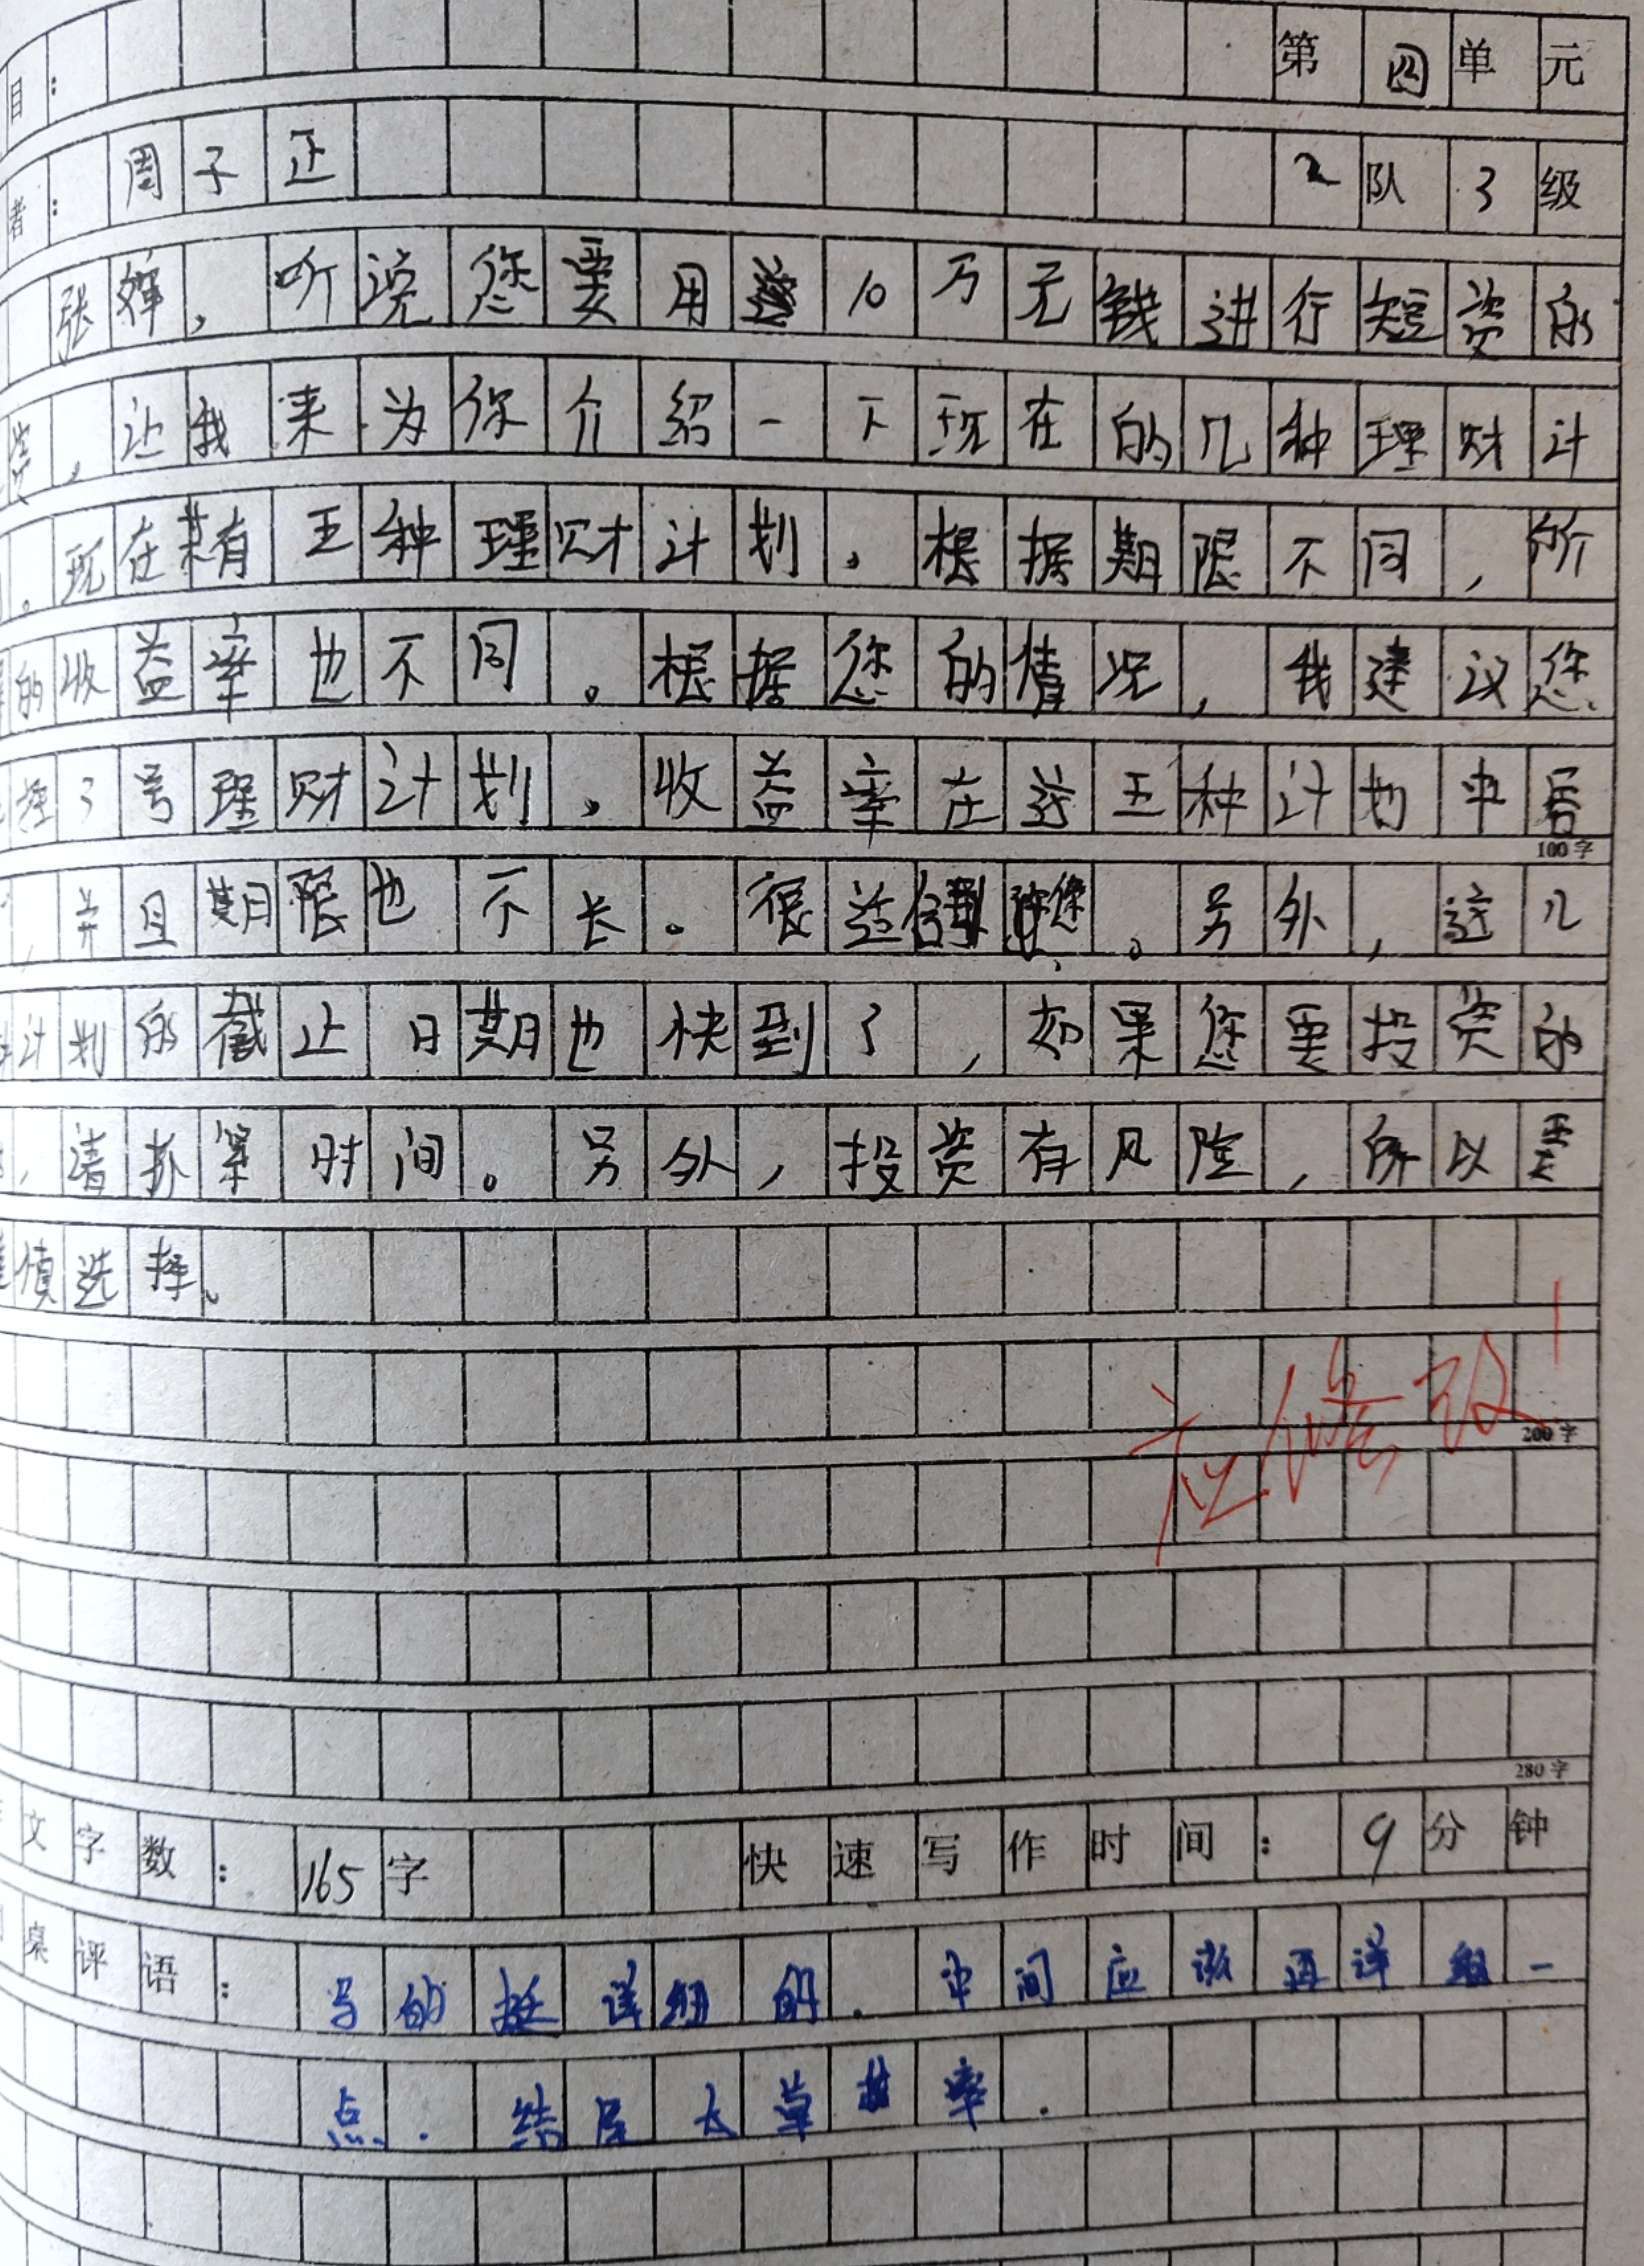 目: 第四单元
者: 周子正 2队3级
张婶,听说您要用10万元钱进行短资的
,让我来为你介绍一下现在的几种理财计
。现在共有五种理财计划,根据期限不同,所
的收益率也不同。根据您的情况,我建议您
择3号理财计划,收益率在这五种计划中居
,并且期限也不长。很适合您。另外,这几
计划的截止日期也快到了,如果您要投资的
,请抓紧时间。另外,投资有风险,所以要
慎选择。
应修改!
100字
200字
280字
文字数: 165字 快速写作时间: 9分钟
桌评语: 写的挺详细的.中间应该再详细一
点.结尾太草率.